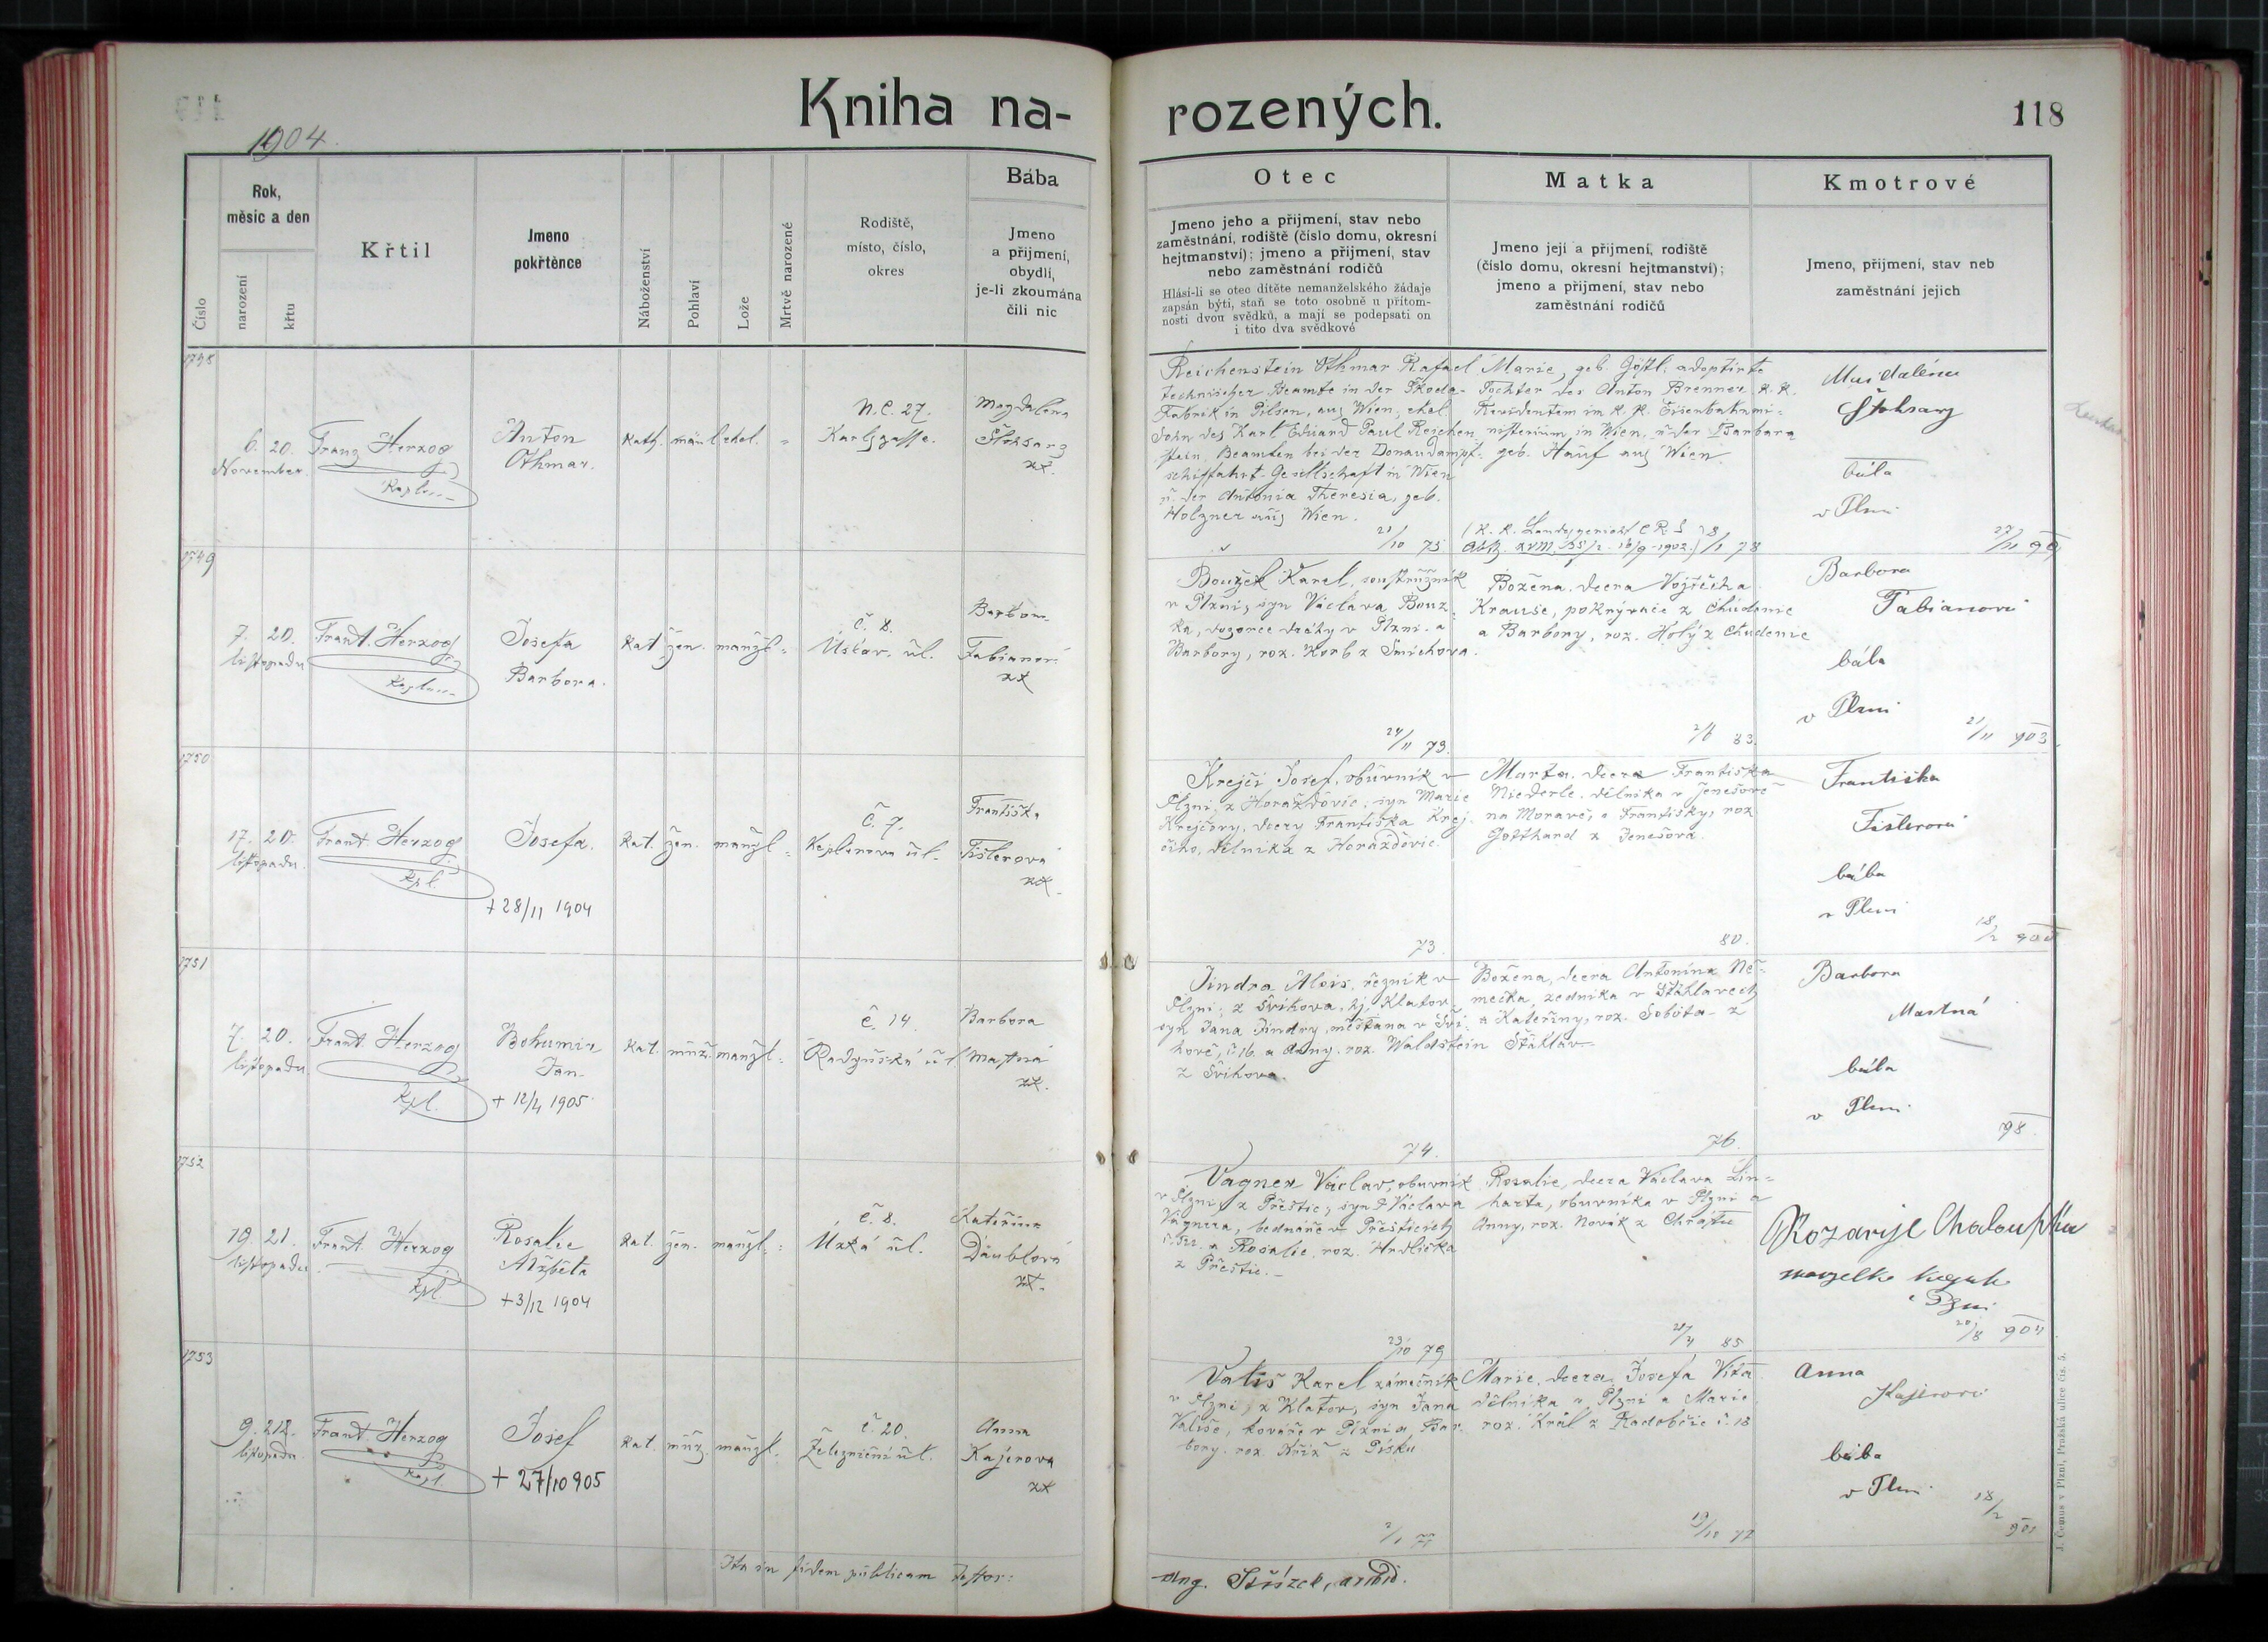 Kniha na-
rozených.
118
1904.
Číslo
Rok,
měsíc a den
narození
křtu
Křtil
Jmeno
pokřtěnce
Náboženství
Pohlaví
Lože
Mrtvě narozené
Rodiště,
místo, číslo,
okres
Bába
Jmeno
a přijmení,
obydlí,
je-li zkoumána
čili nic
Otec
Jmeno jeho a přijmení, stav nebo
zaměstnání, rodiště (číslo domu, okresní
hejtmanství); jmeno a přijmení, stav
nebo zaměstnání rodičů
Hlásí-li se otec dítěte nemanželského žádaje
zapsán býti, staň se toto osobně u přítom-
nosti dvou svědků, a mají se podepsati on
i tito dva svědkové
Matka
Jmeno její a přijmení, rodiště
(číslo domu, okresní hejtmanství);
jmeno a přijmení, stav nebo
zaměstnání rodičů
Kmotrové
Jmeno, přijmení, stav neb
zaměstnání jejich
1748
6. 20.
November.
Franz Herzog
Kaplan
Anton
Othmar.
Kath. männl. ehel. "
N.C. 27.
Karlsgasse.
Magdalena
Reichenstein Othmar Rafael
technischer Beamte in der Škoda-
Fabrik in Pilsen, aus Wien, ehel.
Sohn des Karl Eduard Paul Reichen
stein, Beamten bei der Donaudampf-
schiffahrt-Gesellschaft in Wien
u. der Antonia Theresia, geb.
Holzner aus Wien.
21/10 75
Marie, geb. Göstl, adoptirte
Tochter des Anton Brenner, K. K.
im K. K. Eisenbahnmi-
nisterium in Wien, u. der Barbara
geb. Hauf aus Wien
8/1 78
bába
v Plzni
1749
7. 20.
listopadu
Frant. Herzog
Kaplan
Josefa
Barbora.
Kat. žen. manžl. "
č. 8.
Ústav. ul.
Barbora
Fabianová
zk
Bouzek Karel, soustružník
v Plzni, syn Václava Bouz-
ka, dozorce dráhy v Plzni a
Barbory, roz. Korb z Smíchova.
24/11 79.
Božena, dcera Vojtěcha
Krause, pokrývače z Chudenic
a Barbory, roz. Holý z Chudenic
2/6 83.
Barbora
Fabianová
bába
v Plzni
21/11 903
1750
17. 20.
listopadu.
Frant. Herzog
Kpl.
Josefa.
+ 28/11 1904
Kat. žen. manžl. "
č. 7.
Keplerova ul.
Františka
Fišlerová
zk.
Krejčí Josef, obuvník v
Plzni, z Horažďovic; syn Marie
Krejčovy, dcery Františka Krej-
čího, dělníka z Horažďovic.
73.
Marta, dcera Františka
Niederle, dělníka v Jenešově
na Moravě, a Františky, roz.
Gotthard z Jenešova.
80.
Františka
Fišlerová
bába
v Plzni
1751
7. 20.
listopadu.
Frant. Herzog
Kpl.
Bohumír
Jan
+ 12/4 1905
Kat. muž. manžl. "
č. 14.
Radyňská ul.
Barbora
Mastná
zk.
Jindra Alois, řezník v
Plzni, z Švihova, hj. Klatov,
syn Jana Jindry, měšťana v Švi-
hově, č. 16. a Anny, roz. Waldstein
z Švihova.
74.
Božena, dcera Antonína Ně-
mečka, zedníka v Štáhlavech
a Kateřiny, roz. Sobota z
Štáhlav
76.
Barbora
Mastná
bába
v Plzni
98
1752
19. 21.
listopadu
Frant. Herzog
Kpl.
Rosalie
Alžběta
+ 3/12 1904
Kat. žen. manžl. "
č. 8.
Úzká ul.
Kateřina
Däublová
zk.
Vagner Václav, obuvník
v Plzni z Přeštic, syn Václava
Vágnera, bednáře v Přešticích
a Rosalie, roz. Hrdlička
z Přeštic.
29/10 79
Rosalie, dcera Václava Lin-
harta, obuvníka v Plzni a
Anny, roz. Novák z Chrástu
21/4 85
v Plzni
20/8 904
1753
9. 21.
listopadu.
Frant. Herzog
Kapl.
Josef
+ 27/10 905
Kat. muž. manžl.
č. 20.
Železniční ul.
Anna
Kajerova
zk
Vališ Karel zámečník
v Plzni, z Klatov, syn Jana
Vališe, kováře v Plzni a Bar-
bory, roz. Kříž z Písku
Marie, dcera Josefa Víta
dělníka v Plzni a Marie
roz. Král z Radobčic č. 18
Anna
Kajerová
bába
v Plzni
18/2 901
Ita in fidem publicam testor:
J. Černus v Plzni, Pražská ulice čís. 5.